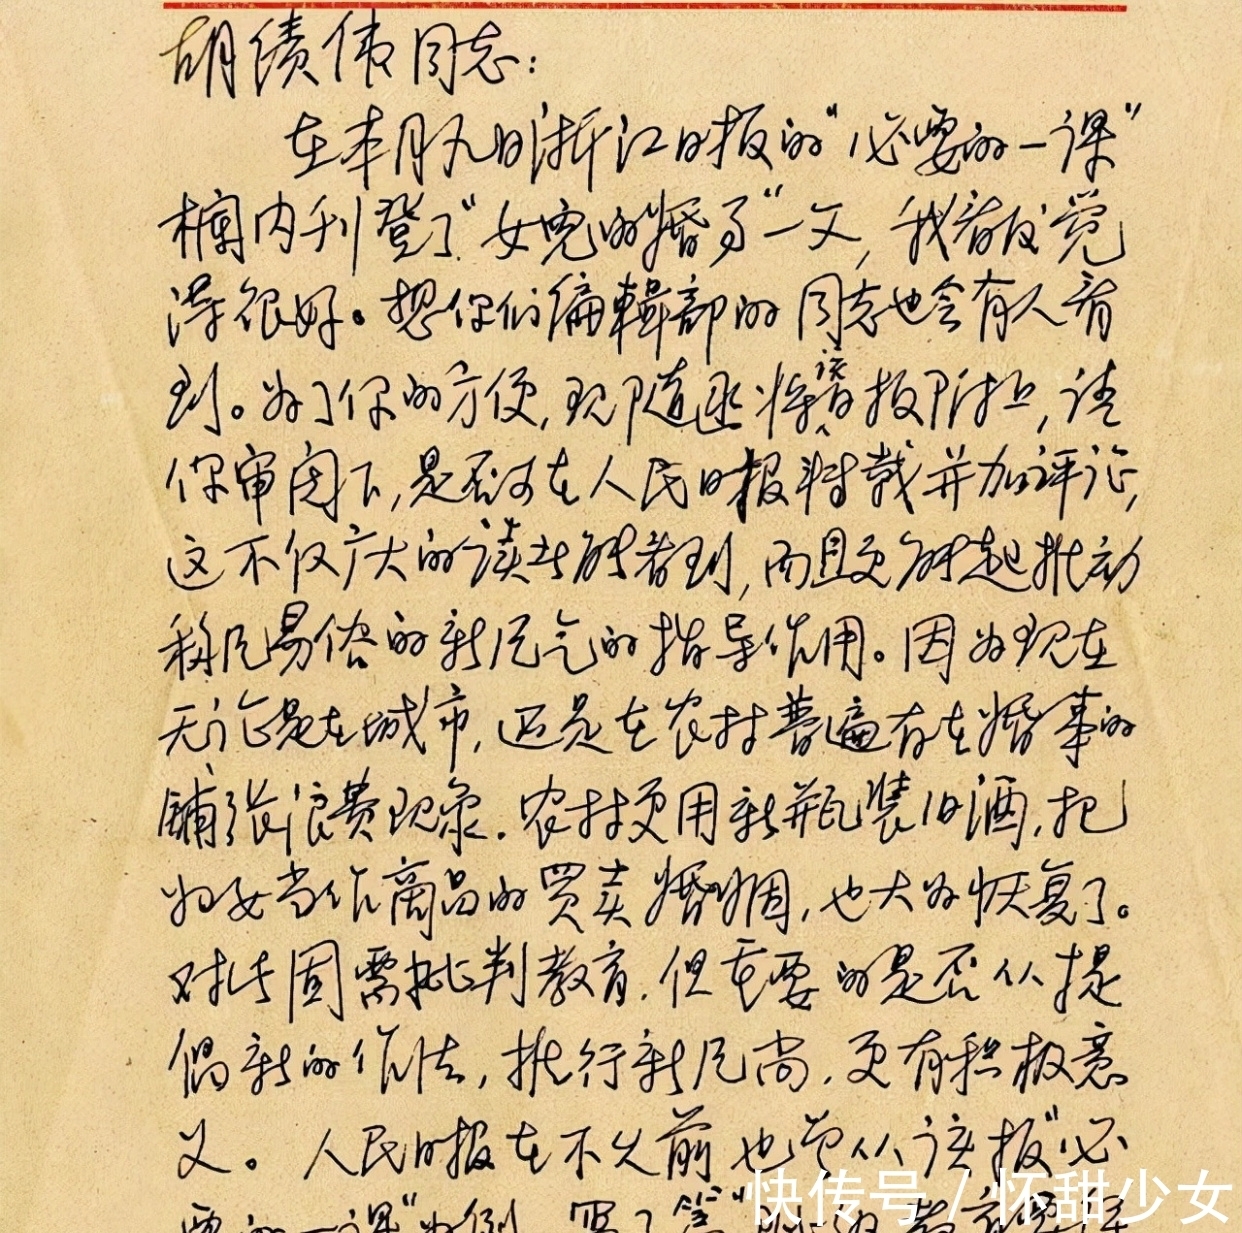 胡绩伟同志：
在本月九日浙江日报的“必要的一课”
栏内刊登了“女儿的婚事”一文，我看后觉
得很好。想你们编辑部的同志也会有人看
到。为了你的方便，现随函将该报附上，请
你审阅下，是否可在人民日报转载并加评论，
这不仅广大的读者能看到，而且更能起推动
移风易俗的新风气的指导作用。因为现在
无论是在城市，还是在农村普遍存在婚事的
铺张浪费现象。农村更用新瓶装旧酒，把
妇女当作商品的买卖婚姻，也大为恢复了。
对此固需批判教育，但重要的是否从提
倡新的作法，推行新风尚，更有积极意
义。人民日报在不久前也曾从该报“必
要的一课”为例，写了
快传号 / 怀甜少女